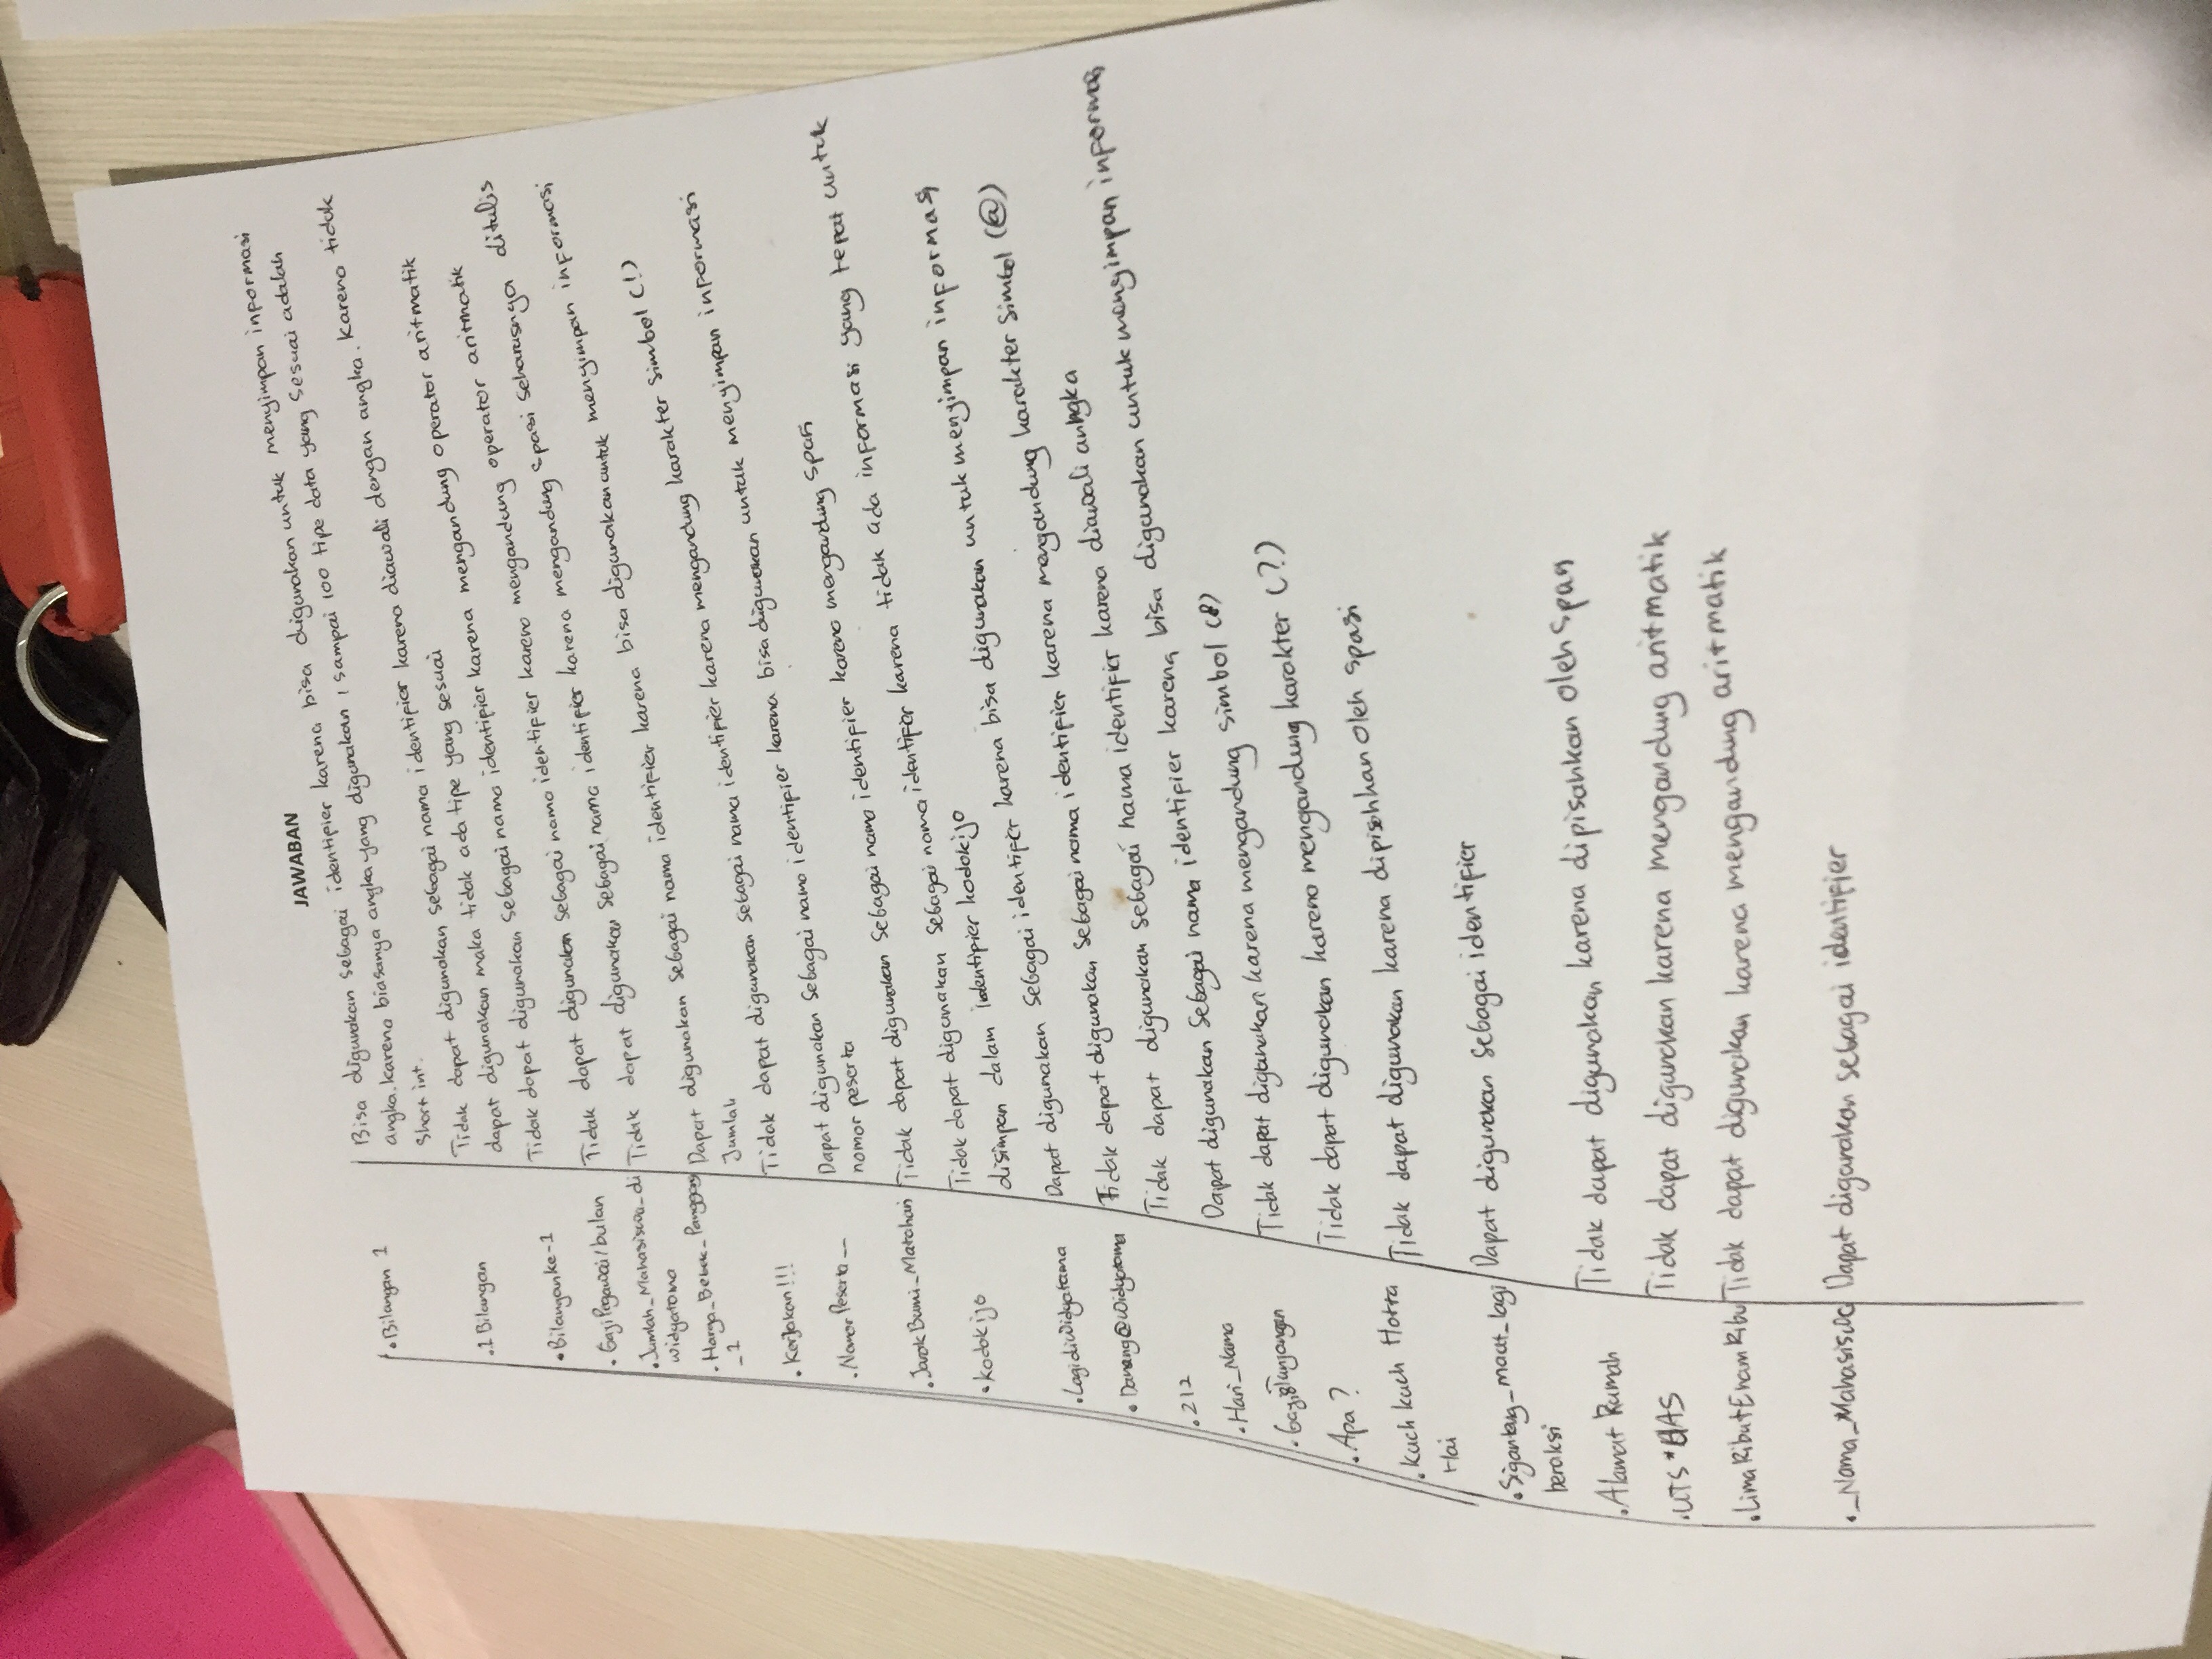 JAWABAN
• Bilangan 1
Bisa digunakan sebagai identifier karena bisa digunakan untuk menyimpan informasi
angka. Karena biasanya angka yang digunakan 1 sampai 100 tipe data yang sesuai adalah
Short int.
• 1 Bilangan
Tidak dapat digunakan sebagai nama identifier karena diawali dengan angka. Karena tidak
dapat digunakan maka tidak ada tipe yang sesuai
• Bilanganke-1
Tidak dapat digunakan sebagai nama identifier karena mengandung operator aritmatik
• Gaji Pegawai/bulan
Tidak dapat digunakan sebagai nama identifier karena mengandung operator aritmatik
• Jumlah_Mahasiswa_di
widyatama
Tidak dapat digunakan sebagai nama identifier karena mengandung spasi seharusnya ditulis
• Harga_Bebek_Panggang
_1
Dapat digunakan sebagai nama identifier karena bisa digunakan untuk menyimpan informasi
Jumlah
• Kerjakan!!!
Tidak dapat digunakan sebagai nama identifier karena mengandung karakter simbol (!)
• Nomor Peserta__
Dapat digunakan sebagai nama identifier karena bisa digunakan untuk menyimpan informasi
nomor peserta
• Jarak Bumi_Matahari
Tidak dapat digunakan sebagai nama identifier karena mengandung spasi
• kodokijo
Tidak dapat digunakan sebagai nama identifier karena tidak ada informasi yang tepat untuk
disimpan dalam identifier kodokijo
• LagidiWidyatama
Dapat digunakan sebagai identifier karena bisa digunakan untuk menyimpan informasi
• Danang@widyatama
Tidak dapat digunakan sebagai nama identifier karena mengandung karakter simbol (@)
• 212
Tidak dapat digunakan sebagai nama identifier karena diawali angka
• Hari_Nama
Dapat digunakan sebagai nama identifier karena bisa digunakan untuk menyimpan informasi
• Gaji&Tunjangan
Tidak dapat digunakan karena mengandung simbol (&)
• Apa ?
Tidak dapat digunakan karena mengandung karakter (?)
• Kuch kuch Hotta
Hai
Tidak dapat digunakan karena dipisahkan oleh spasi
• Siganteng_maut_lagi
beraksi
Dapat digunakan sebagai identifier
• Alamat Rumah
Tidak dapat digunakan karena dipisahkan oleh spasi
• UTS*UAS
Tidak dapat digunakan karena mengandung aritmatik
• Lima Ribu+Enam Ribu
Tidak dapat digunakan karena mengandung aritmatik
• _Nama_Mahasiswa
Dapat digunakan sebagai identifier